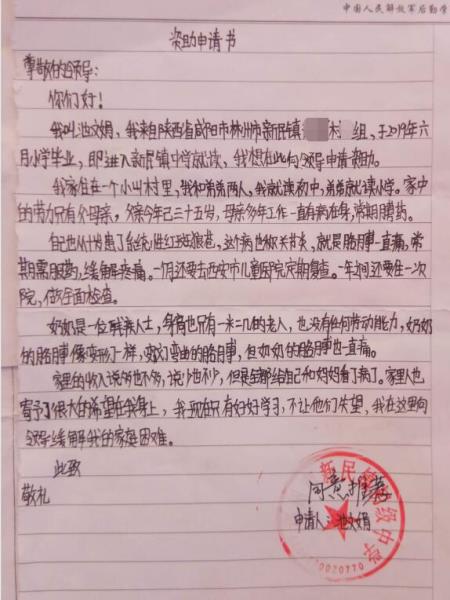 中国人民解放军后勤学
资助申请书
尊敬的领导:
你们好!
我叫池文娟,我来自陕西省咸阳市林州市新民镇 村 组,于2019年六
月小学毕业,即进入新民镇中学就读,我想在此向领导申请资助。
我家住在一个小山村里,我和弟弟两人。我就读初中,弟弟就读小学。家中
的劳力只有个母亲,父亲今年已三十五岁,母亲多年工作一直有病在身,常期服药。
自己从 患了系统性红斑狼苍,这个病也 关节炎,就是胳膊一直痛,常
期需服药,缓解疼痛。一月还要去西安市儿童医院定期复查。一年间还要住一次
院,做全面检查。
奶奶是一位残疾人士,身高也只有一米二几的老人,也没有任何劳动能力,奶奶
的胳膊像变形了一样, 弯曲的胳膊,但奶奶的胳膊也一直痛。
家里的收入说多也不多,说少也不少,但是全都给自己和妈妈看了病了。家里人也
寄予了很大的希望在我身上,我现在只有好好学习,不让他们失望,我在这里向
领导缓解我的家庭困难。
此致
敬礼
同意推荐
申请人:池文娟
新民镇初级中学